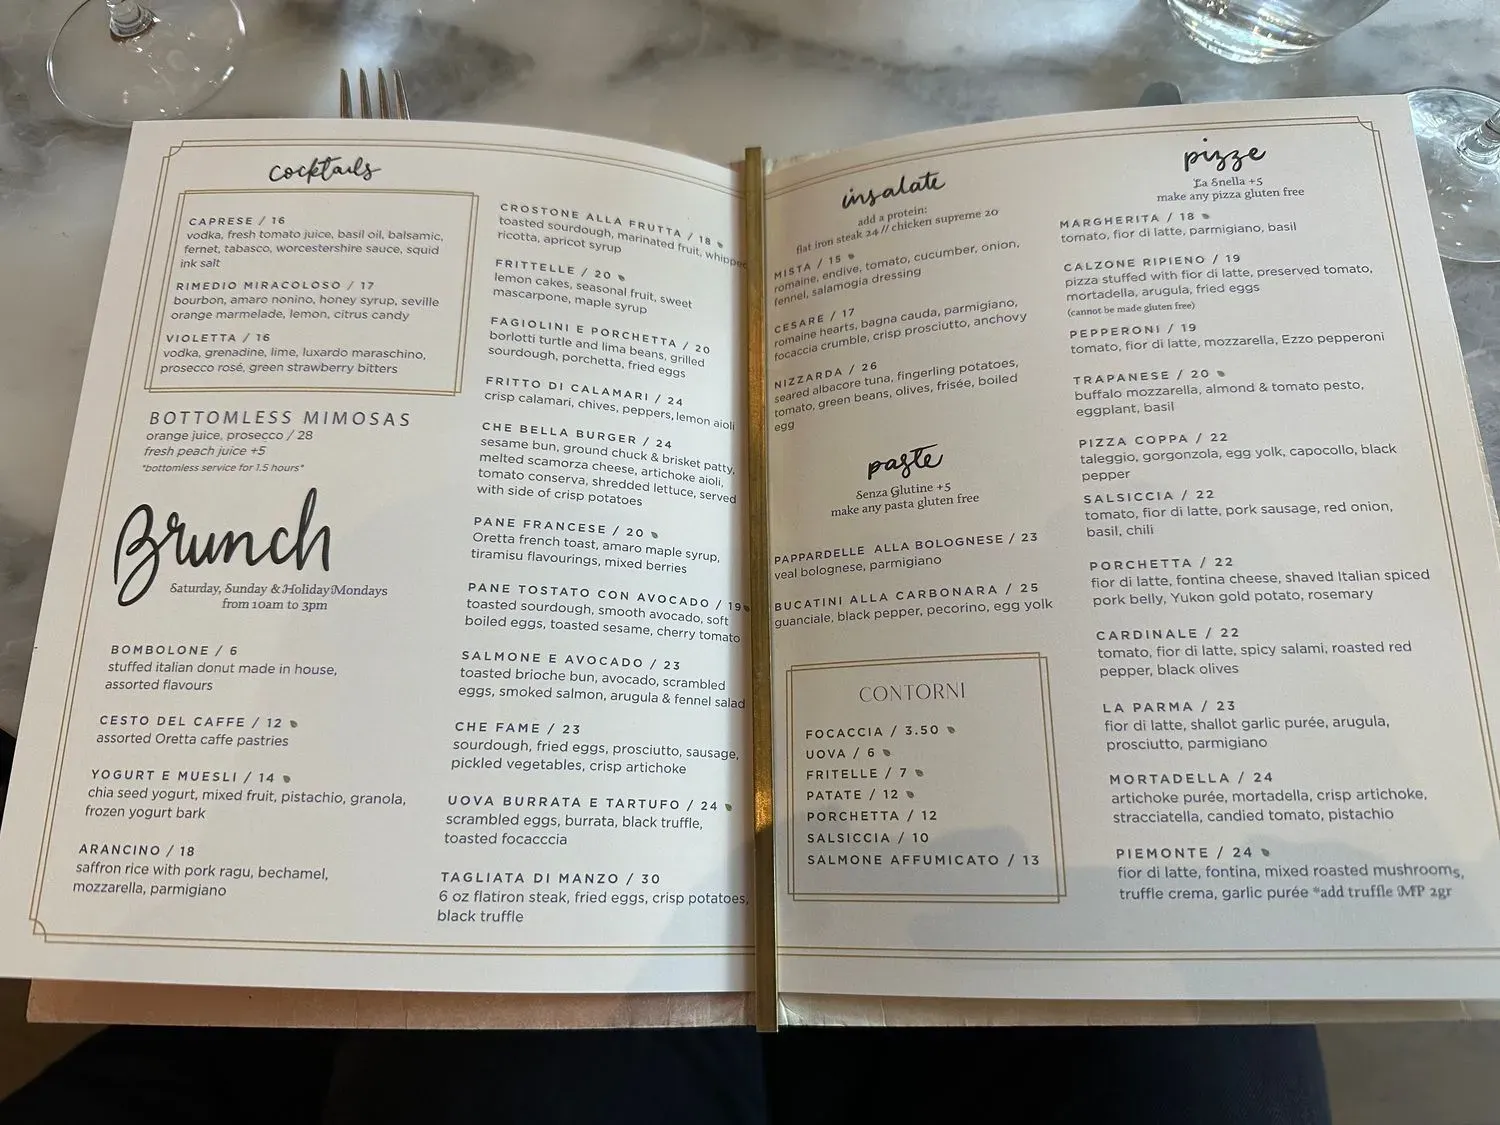 cocktails
CAPRESE / 16
vodka, fresh tomato juice, basil oil, balsamic,
fernet, tabasco, worcestershire sauce, squid
ink salt
RIMEDIO MIRACOLOSO / 17
bourbon, amaro nonino, honey syrup, seville
orange marmelade, lemon, citrus candy
VIOLETTA / 16
vodka, grenadine, lime, luxardo maraschino,
prosecco rosé, green strawberry bitters
BOTTOMLESS MIMOSAS
orange juice, prosecco / 28
fresh peach juice +5
*bottomless service for 1.5 hours*
Brunch
Saturday, Sunday & Holiday Mondays
from 10am to 3pm
BOMBOLONE / 6
stuffed italian donut made in house,
assorted flavours
CESTO DEL CAFFE / 12
assorted Oretta caffe pastries
YOGURT E MUESLI / 14
chia seed yogurt, mixed fruit, pistachio, granola,
frozen yogurt bark
ARANCINO / 18
saffron rice with pork ragu, bechamel,
mozzarella, parmigiano
CROSTONE ALLA FRUTTA / 18
toasted sourdough, marinated fruit, whipped
ricotta, apricot syrup
FRITTELLE / 20
lemon cakes, seasonal fruit, sweet
mascarpone, maple syrup
FAGIOLINI E PORCHETTA / 20
borlotti turtle and lima beans, grilled
sourdough, porchetta, fried eggs
FRITTO DI CALAMARI / 24
crisp calamari, chives, peppers, lemon aioli
CHE BELLA BURGER / 24
sesame bun, ground chuck & brisket patty,
melted scamorza cheese, artichoke aioli,
tomato conserva, shredded lettuce, served
with side of crisp potatoes
PANE FRANCESE / 20
Oretta french toast, amaro maple syrup,
tiramisu flavourings, mixed berries
PANE TOSTATO CON AVOCADO / 19
toasted sourdough, smooth avocado, soft
boiled eggs, toasted sesame, cherry tomato
SALMONE E AVOCADO / 23
toasted brioche bun, avocado, scrambled
eggs, smoked salmon, arugula & fennel salad
CHE FAME / 23
sourdough, fried eggs, prosciutto, sausage,
pickled vegetables, crisp artichoke
UOVA BURRATA E TARTUFO / 24
scrambled eggs, burrata, black truffle,
toasted focacccia
TAGLIATA DI MANZO / 30
6 oz flatiron steak, fried eggs, crisp potatoes,
black truffle
insalate
add a protein:
flat iron steak 24 // chicken supreme 20
MISTA / 15
romaine, endive, tomato, cucumber, onion,
fennel, salamogia dressing
CESARE / 17
romaine hearts, bagna cauda, parmigiano,
focaccia crumble, crisp prosciutto, anchovy
NIZZARDA / 26
seared albacore tuna, fingerling potatoes,
tomato, green beans, olives, frisée, boiled
egg
paste
Senza Glutine +5
make any pasta gluten free
PAPPARDELLE ALLA BOLOGNESE / 23
veal bolognese, parmigiano
BUCATINI ALLA CARBONARA / 25
guanciale, black pepper, pecorino, egg yolk
CONTORNI
FOCACCIA / 3.50
UOVA / 6
FRITELLE / 7
PATATE / 12
PORCHETTA / 12
SALSICCIA / 10
SALMONE AFFUMICATO / 13
pizze
La Snella +5
make any pizza gluten free
MARGHERITA / 18
tomato, fior di latte, parmigiano, basil
CALZONE RIPIENO / 19
pizza stuffed with fior di latte, preserved tomato,
mortadella, arugula, fried eggs
(cannot be made gluten free)
PEPPERONI / 19
tomato, fior di latte, mozzarella, Ezzo pepperoni
TRAPANESE / 20
buffalo mozzarella, almond & tomato pesto,
eggplant, basil
PIZZA COPPA / 22
taleggio, gorgonzola, egg yolk, capocollo, black
pepper
SALSICCIA / 22
tomato, fior di latte, pork sausage, red onion,
basil, chili
PORCHETTA / 22
fior di latte, fontina cheese, shaved Italian spiced
pork belly, Yukon gold potato, rosemary
CARDINALE / 22
tomato, fior di latte, spicy salami, roasted red
pepper, black olives
LA PARMA / 23
fior di latte, shallot garlic purée, arugula,
prosciutto, parmigiano
MORTADELLA / 24
artichoke purée, mortadella, crisp artichoke,
stracciatella, candied tomato, pistachio
PIEMONTE / 24
fior di latte, fontina, mixed roasted mushrooms,
truffle crema, garlic purée *add truffle MP 2gr